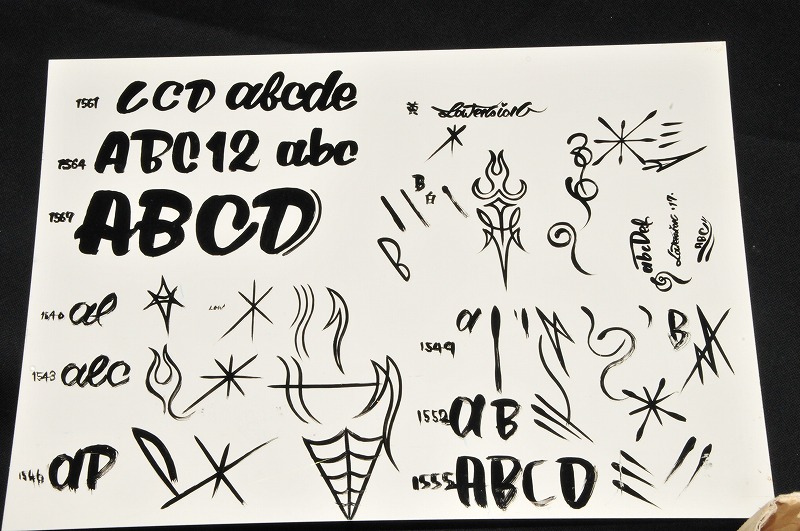 1561 CCD abcde
1564 ABC12 abc
1567 ABCD
Lowtension
B
白
B
abcDef
Lowtension '17.
ABC
1540 al
LOW
1543 alc
1546 ap
a
B
1549
1552 aB
1555 ABCD